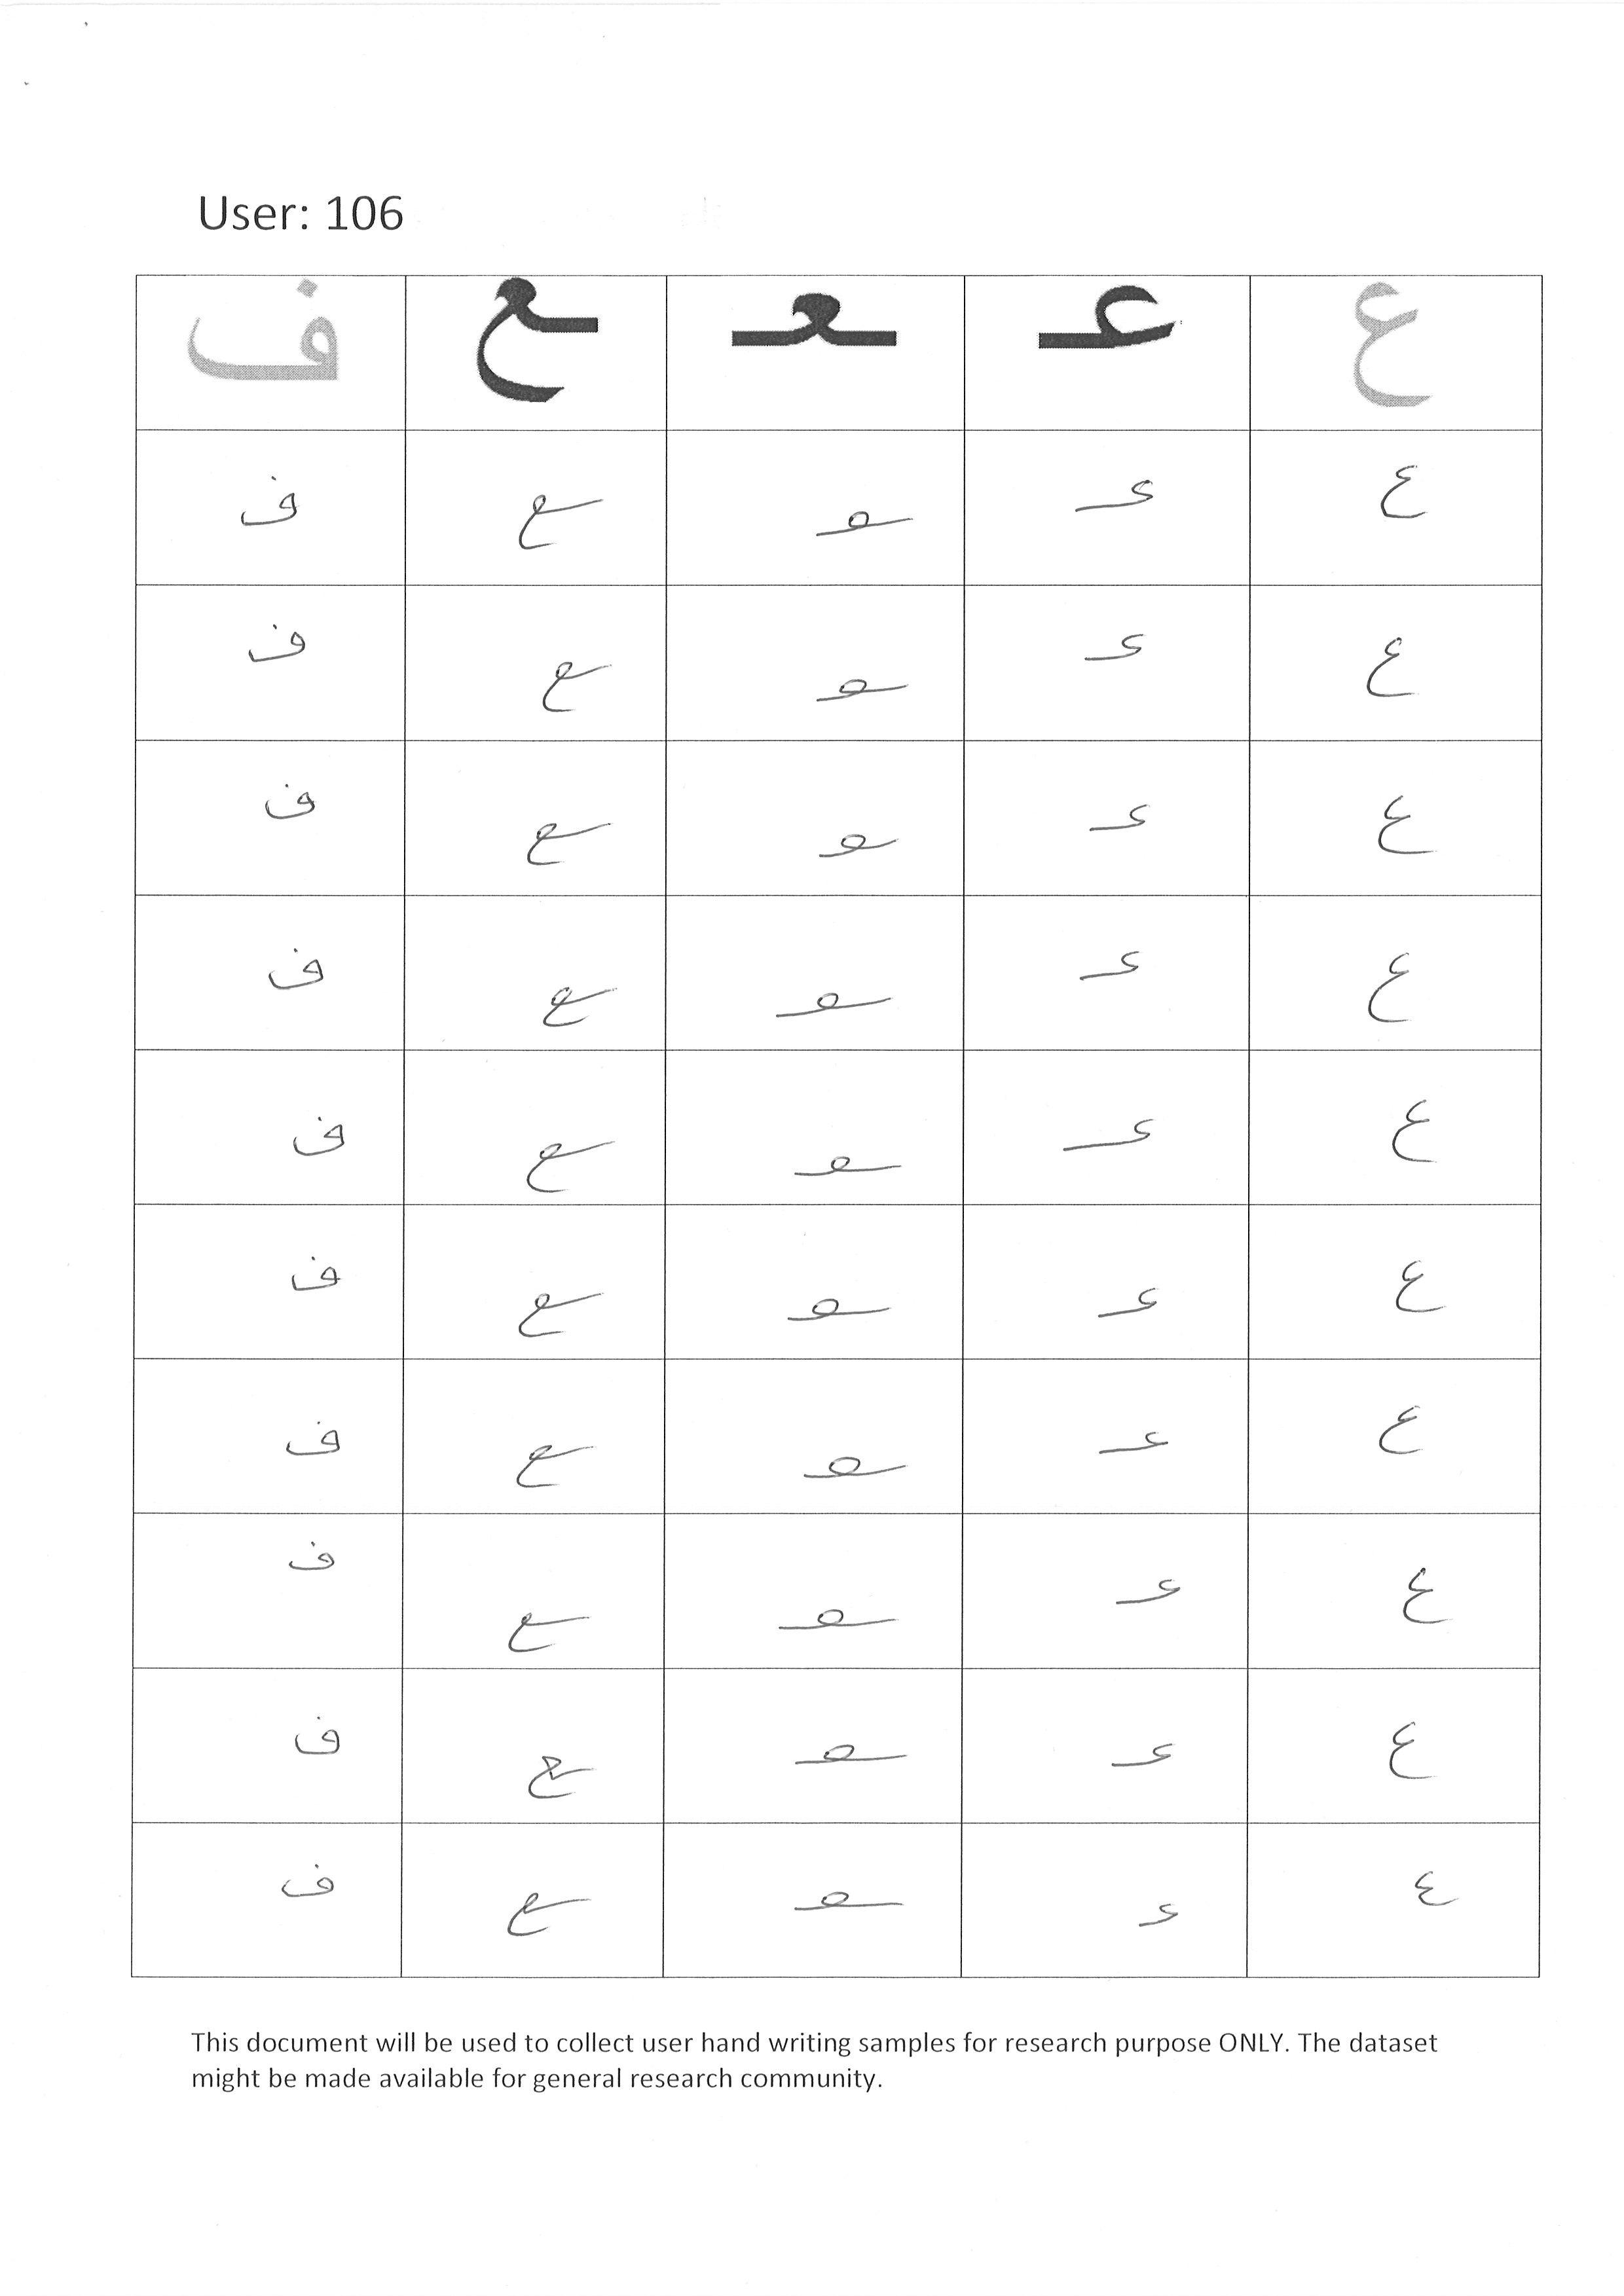 User: 106
ع عـ ـعـ ـع ف
ع عـ ـعـ ـع ف
ع عـ ـعـ ـع ف
ع عـ ـعـ ـع ف
ع عـ ـعـ ـع ف
ع عـ ـعـ ـع ف
ع عـ ـعـ ـع ف
ع عـ ـعـ ـع ف
ع عـ ـعـ ـع ف
ع عـ ـعـ ـع ف
ع عـ ـعـ ـع ف
This document will be used to collect user hand writing samples for research purpose ONLY. The dataset
might be made available for general research community.